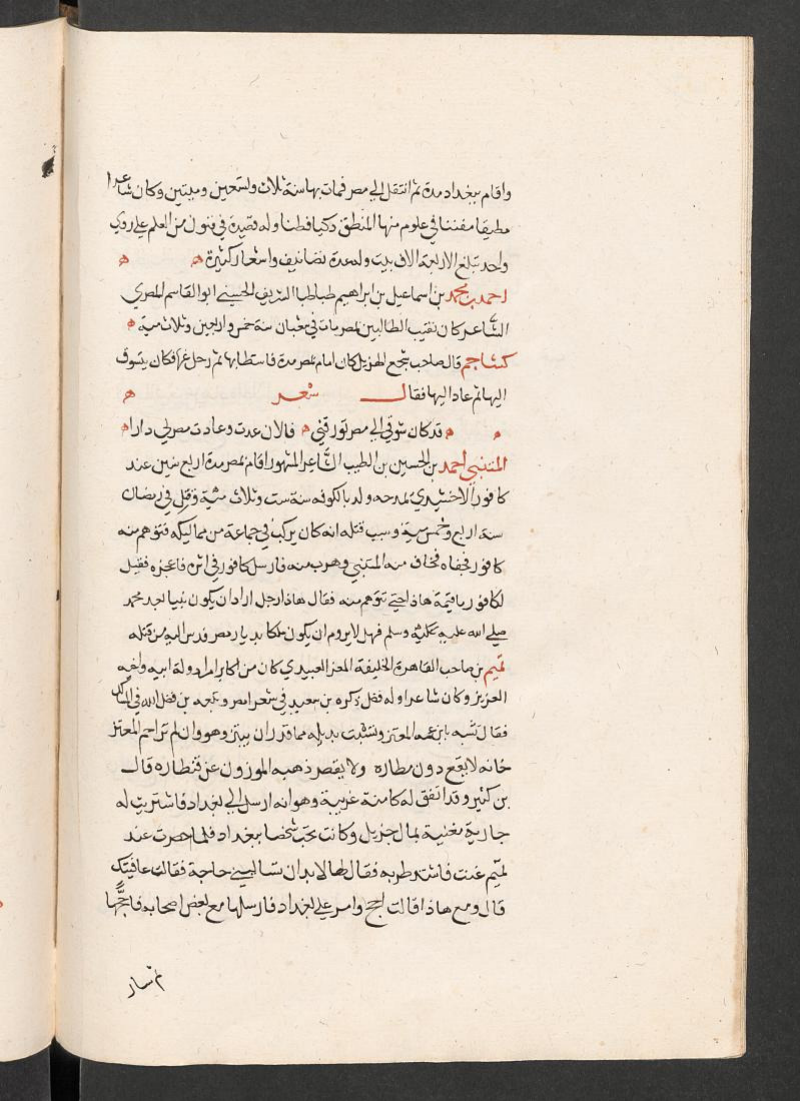 واقام ببغداد مدة ثم انتقل الي مصر فمات بها سنة ثلاث وتسعين وميتين وكان شاعرا
مطبقا مفننا في علوم منها المنطق ذكيا فطنا وله قصيدة في فنون من العلم علي روي
واحد تبلغ الاربعة الاف بيت وله عدة تصانيف واشعار كثيرة
احمد بن محمد بن اسماعيل بن ابراهيم طباطبا الشريف الحسيني ابو القاسم المصري
الشاعر كان نقيب الطالبين بمصر مات في شعبان سنة خمس واربعين وثلاث مية
كشاجم قال صاحب سجع الهزيل كان اقام بمصر مدة فاستطابها ثم رحل عنها فكان يتسوف
اليها ثم عاد اليها فقال شعر
قد كان شوقي الي مصر تورقني فالان عدت وعادت مصر لي دارا
المتنبي احمد بن الحسين بن الطيب الشاعر المشهور اقام بمصر مدة اربع سنين عند
كافور الاخشيدي يمدحه ولد بالكوفه سنة ست وثلاث مئية وقتل في رمضان
سنة اربع وخمس مية وسبب قتله انه كان يركب في جماعة من مماليكه فتوهم منه
كافور فجفاه فخاف منه المتنبي وهرب منه فارسل كافور في اثره فاعجزه فقيل
لكافور ما قيمة هاذا حتي تتوهم منه فقال هاذا رجل اراد ان يكون نبيا بعد محمد
صلي الله عليه وسلم فهل لا يروم ان يكون ملكا بديار مصر فدس اليه من قتله
تميم بن صاحب القاهرة الخليفة المعز العبيدي كان من اكابر امرا دولة ابيه واخيه
العزيز وكان شاعرا وله فضل ذكره بن سعيد في شعرا مصر و بن فضل الله في المسالك
فقال تشبه بابن عمه المعتز وتشبث بذيله مما قدر ان يبتز وهو وان لم تزاحم المعتز
خانه لا يقع دون مطاره ولا يقصر ذهبه الموزون عن قنطاره قال
بن كثير وقد اتفق له كامنة غريبة وهو انه ارسل الي بغداد فاشتريت له
جارية مغنية بمال جزيل وكانت تحب شخصا ببغداد فلما حضرت عند
تميم غنت فاشتد طربه فقال لها لابد ان تساليني حاجة فقالت عافيتك
قال ومع هاذا قالت احج وامر علي بغداد فارسلها مع بعض اصحابه فاحجها
ثم سار